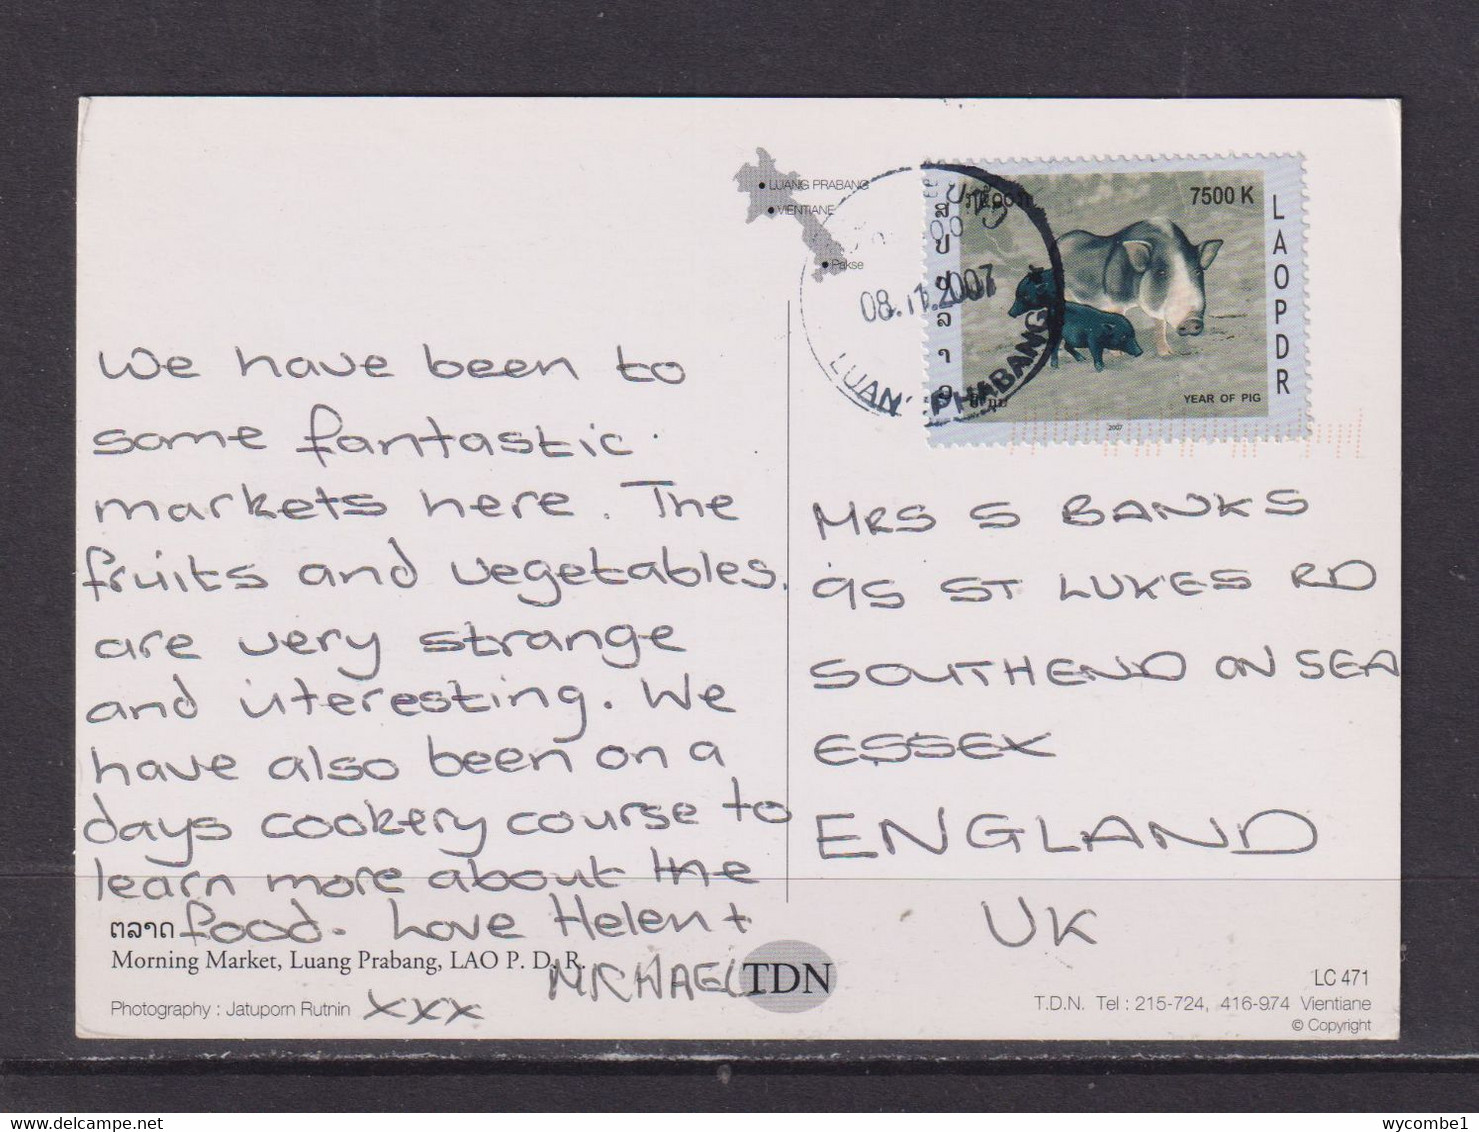 LUANG PRABANG
VIENTIANE
Pakse
7500 K
ສ ປ ປ ລາວ
LAOPDR
08.11.2007
YEAR OF PIG
2007
We have been to
some fantastic
markets here. The
fruits and vegetables,
are very strange
and interesting. We
have also been on a
days cookery course to
learn more about the
food. Love Helen +
MICHAEL
xxx
MRS S BANKS
95 ST LUKES RD
SOUTHEND ON SEA
ESSEX
ENGLAND
UK
ຕລາດ
Morning Market, Luang Prabang, LAO P. D. R.
Photography : Jatuporn Rutnin
TDN
LC 471
T.D.N. Tel : 215-724, 416-974 Vientiane
© Copyright
wycombe1